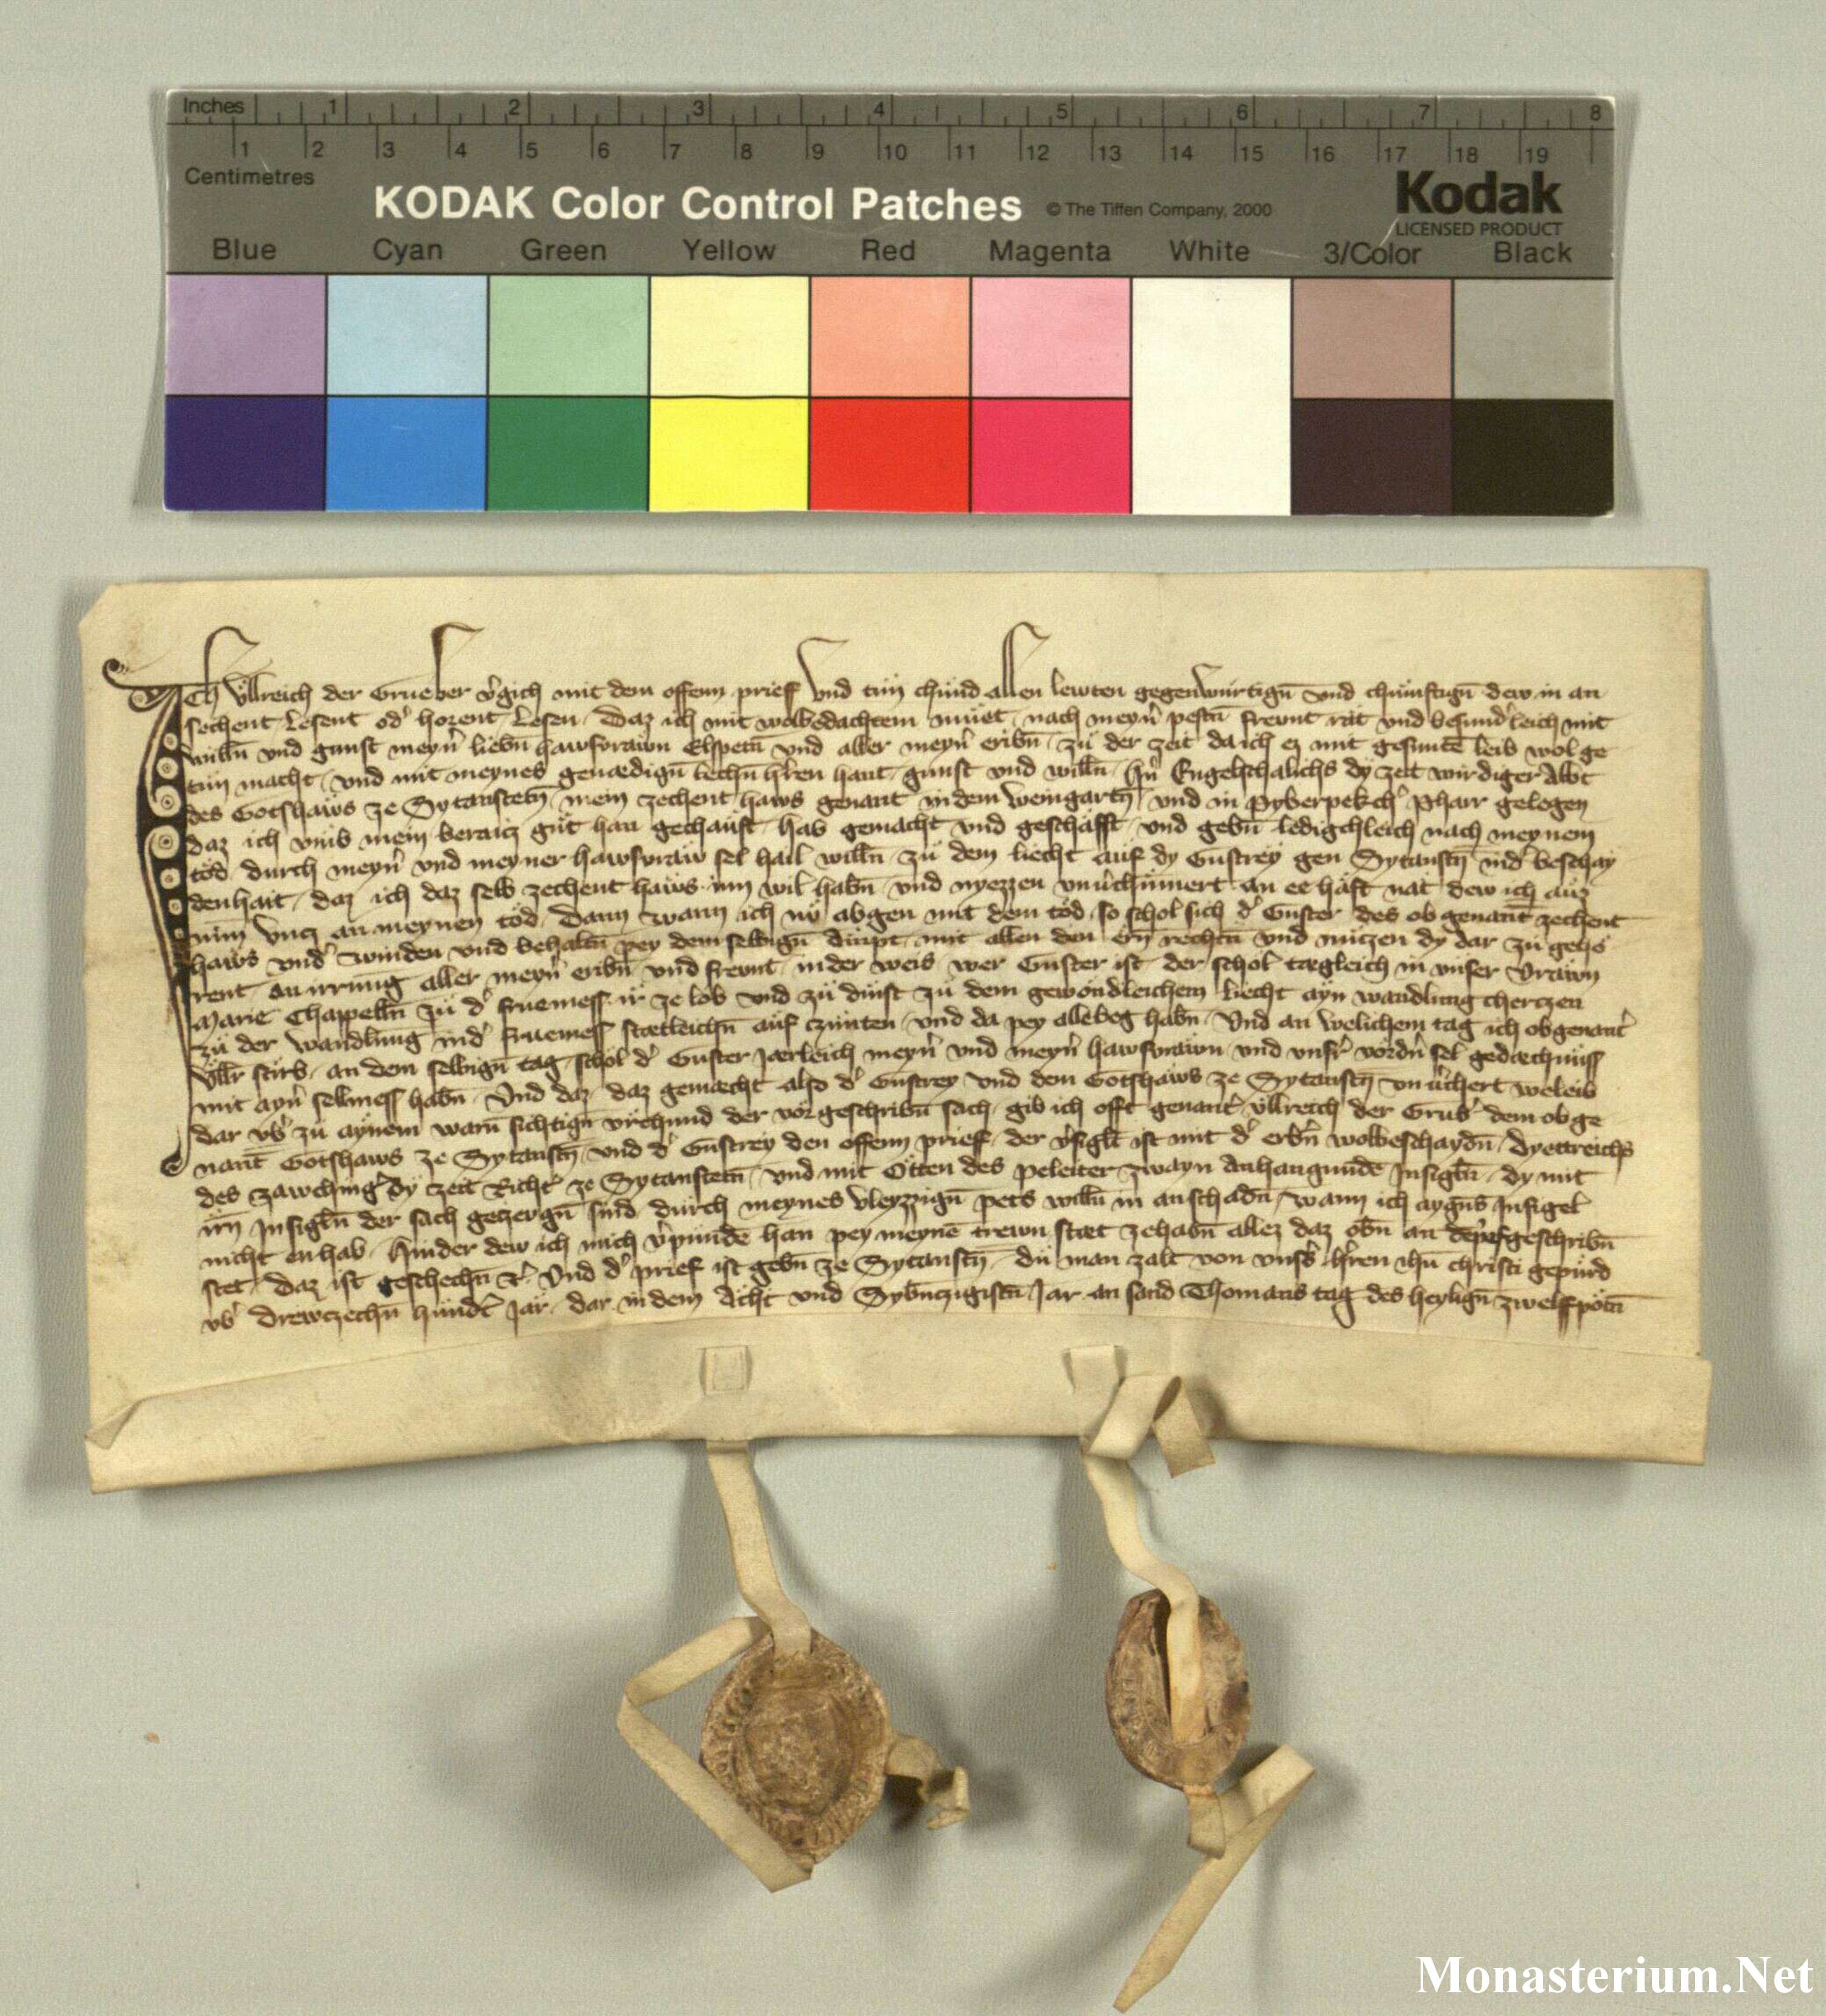 Inches 1 2 3 4 5 6 7 8
1 2 3 4 5 6 7 8 9 10 11 12 13 14 15 16 17 18 19
Centimetres
KODAK Color Control Patches © The Tiffen Company, 2000 Kodak
LICENSED PRODUCT
Blue Cyan Green Yellow Red Magenta White 3/Color Black
Ich Ullreich der Grueber v̓gich mit dem offenn prieff Und tün chund allen lewten gegenwürtign̄ und chünftign̄ dew in an
sechent lesent od̓ horent lesen Daz ich mit wolbedachtem müet nach meyn̓ pestn̄ frewnt rät und besund̓leich mit
willn̄ und gunst meyn̓ liebn̄ hawsvrawn Elspetn̄ und aller meyn̓ eribn̄ zü der zeit da ich ez mit gesuntē leib wol ge
tün macht und mit meynes genædign̄ lechn̄ h̓ren hant gunst und willn̄ hn̓ Engelschalichs dy zeit wirdiger Abbt
des Gotshaws ze Sytanstetn̄ mein zechent haws genant in dem Weingartn̄ und in Pyberpekch̓ Pharr gelegen
daz ich umb mein beraitz güt han gechauft hab gemacht und geschafft und gebn̄ ledigchleich nach meynem
töd durch meyn̓ und meyner hawsvraw sel hail willn̄ zü dem liecht auf dy Gustrey gen Sytanstn̄ in d̓ beschay
denhait daz ich daz selb zechent haws inn wil habn̄ und nyezzen unv̓chümert an ee haft nat dew ich auz
nim untz an meynen töd Dann wann ich nü abgen mit dem töd so schol sich d̓ Guster des ob genant̄ zechent
haws und̓ winden und behaltn̄ pey dem selbign̄ dinst mit allen den ern̄ rechtn̄ und nützen dy dar zü gehö
rent an irrung aller meyn̓ eribn̄ und frewnt in der weis wer Guster ist der schol tægleich in unser Vrawn
Marie Chappelln̄ zü d̓ fruemess ir ze lob und zü dinst zü dem gewöndleichem liecht ayn wandlung chertzen
zü der wandlung in d̓ fruemess stætleichn̄ auf czünten und da pey alleweg habn̄ Und an welichem tag ich obgenant̓
Ullr̄ stirb an dem selbign̄ tag schol d̓ Guster Jærleich meyn̓ und meyn̓ hawsvrawn und unsr̓ vordn̓ sel gedæchnüss
mit ayn̓ selmess habn̄ Und daz daz gemæcht also d̓ Gustrey und dem Gotshaws ze Sytanstn̄ unv̓chert weleib
dar ub̓ zü aynem warn̄ sichtign̄ urchund der vor geschribn̄ sach gib ich offt genant̓ Ullreich der Grub̓ dem ob ge
nant̄ Gotshaws ze Sytanstn̄ und d̓ Gustrey den offenn prief der v̓siglt̄ ist mit d̓ erbn̄ wolbeschaydn̄ Dyettreichs
des Zawching̓ dy zeit Richt̓ ze Sytanstetn̄ und mit Otten des Peleiter zwayn anhangundē Insigln̄ dy mit
irn̄ Insigln̄ der sach gezeugn̄ sind durch meynes vleyzzign̄ pets willn̄ in an schadn̄ wann ich aygn̄s Insigel
nicht enhab hinder dew ich mich v̓pundē han pey meynē trewn stæt ze habn̄ allez daz obn̄ an dē prief geschribn̄
stet Daz ist geschechn̄ Und d̓ prief ist gebn̄ ze Sytanstn̄ du man zalt von unsers h̓ren ihū christi gepurd
ub̓ Drewczechn̄ hundt̓ Jar dar in dem Acht und Sybnczigistn̄ Jar an sand Thomans tag des heylign̄ zwelfpotn̄
Monasterium.Net